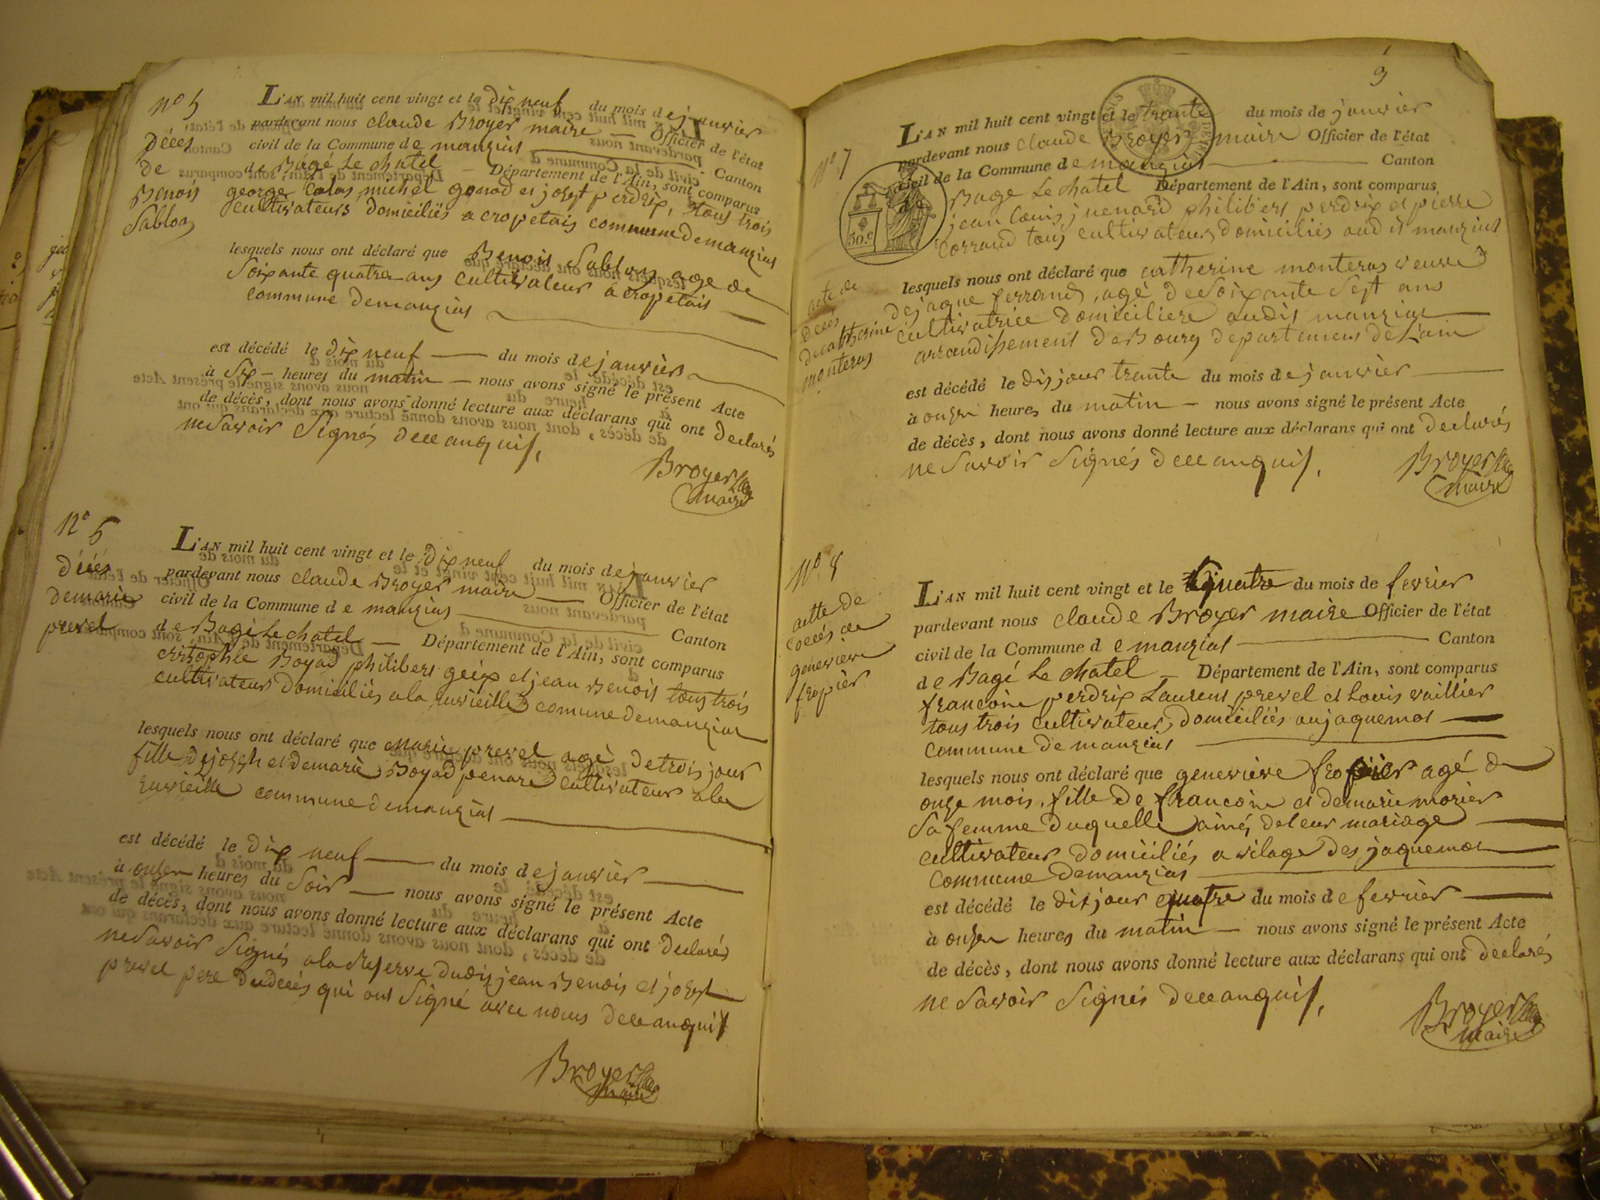 nº 5
décès
de
Benois
Sablon
L'AN mil huit cent vingt et le dix neuf du mois de janvier
pardevant nous claude Broyer maire Officier de l'état
civil de la Commune de manziat Canton
de Bagé Le chatel Département de l'Ain, sont comparus
george Calas michel gonod et josept perdrix, tous trois
cultivateurs domiciliés a cropetais commune demanziat
lesquels nous ont déclaré que Benois Sablon age de
Soixante quatre ans cultivateur a cropetais
commune demanziat
est décédé le dix neuf du mois de janvier
à Six heures du matin nous avons signé le présent Acte
de décès, dont nous avons donné lecture aux déclarans qui ont declarés
ne Savoir Signés
Broyer
maire
nº 6
décés
demarie
prevel
L'AN mil huit cent vingt et le dix neuf du mois de janvier
pardevant nous claude Broyer maire Officier de l'état
civil de la Commune de manziat Canton
de Bagé Le chatel Département de l'Ain, sont comparus
Boyad philibert et jean Benois tous trois
cultivateurs domiciliés a la comune demanziat
lesquels nous ont déclaré que marie prevel agé detrois jour
fille dejoseph et demarie Boyad cultivateur a la
commune demanziat
est décédé le dix neuf du mois de janvier
à onzen heures du Soir nous avons signé le présent Acte
de décès, dont nous avons donné lecture aux déclarans qui ont declarés
ne Savoir Signés a la reserve dudis jean Benois et joseph
prevel pere dudecés qui ont Signé avec nous
Broyer
maire
9
nº 7
acte de
décés
decatherine
monteras
30 c
L'AN mil huit cent vingt et le trente du mois de janvier
pardevant nous claude Broyer maire Officier de l'état
civil de la Commune de manziat Canton
Bagé Le chatel Département de l'Ain, sont comparus
jean Louis juenard philibert perdrix et pierre
Corrand tous cultivateurs domiciliés audis manziat
lesquels nous ont déclaré que catherine monteras veuve
dejaque ferrand, agé deSoixante Sept ans
cultivatrice domiciliere audis manziat
arrondissement deBourg departement deLain
est décédé le dis jour trante du mois de janvier
à onzen heures du matin nous avons signé le présent Acte
de décès, dont nous avons donné lecture aux déclarans qui ont declarés
ne Savoir Signés
Broyer
maire
nº 8
actte de
decés de
genevieve
L'AN mil huit cent vingt et le quatre du mois de fevrier
pardevant nous claude Broyer maire Officier de l'état
civil de la Commune de manziat Canton
de Bagé Le chatel Département de l'Ain, sont comparus
francois perdrix Laurent prevel et Louis vaillier
tous trois cultivateurs domiciliés aujaquemot
commune de manziat
lesquels nous ont déclaré que geneviève agé de
onze mois, fille de francois et demarie morier
Sa femme duquelle aimé deleur mariage
cultivateur domiciliés a vilage des jaquemot
commune demanziat
est décédé le dit jour quatre du mois de fevrier
à onzen heures du matin nous avons signé le présent Acte
de décès, dont nous avons donné lecture aux déclarans qui ont declarés
ne Savoir Signés
Broyer
maire